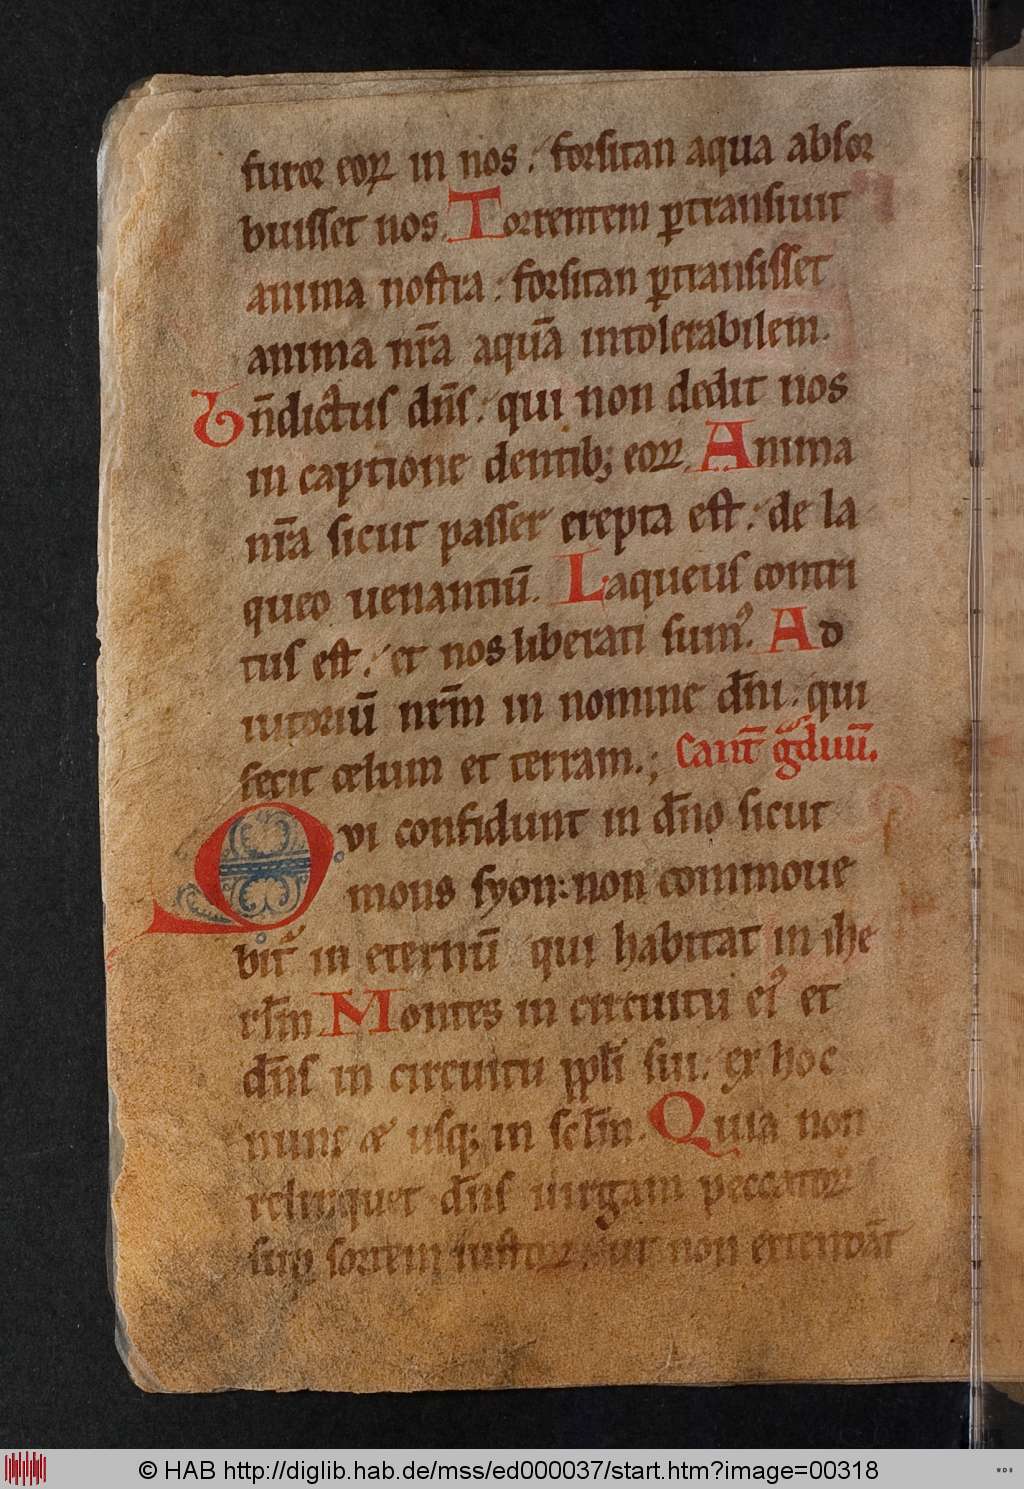 furor eoꝝ in nos. forsitan aqua absor
buisset nos. Torrentem ꝑtransiuit
anima nostra: forsitan ꝑtransisset
anima nr̄a aquā intolerabilem.
Bn̄dictus dn̄s. qui non dedit nos
in captione dentibꝫ eoꝝ. Anima
nr̄a sicut passer erepta est. de la
queo uenantiū. Laqueus contri
tus est. et nos liberati sumꝰ. Ad
iutoriū nrm̄ in nomine dn̄i. qui
fecit celum et terram.; Cant̄ gᵃduū.
Qvi confidunt in dn̄o sicut
mons syon: non commoue
bit᷑ in eternū qui habitat in ihe
rl̄m. Montes in circuitu eiꝰ et
dn̄s in circuitu ppl̄i sui. ex hoc
nunc et usqꝫ in scl̄m. Quia non
relinquet dn̄s uirgam peccatoꝝ
suꝑ sortem iustoꝝ. ut non extendāt
© HAB http://diglib.hab.de/mss/ed000037/start.htm?image=00318